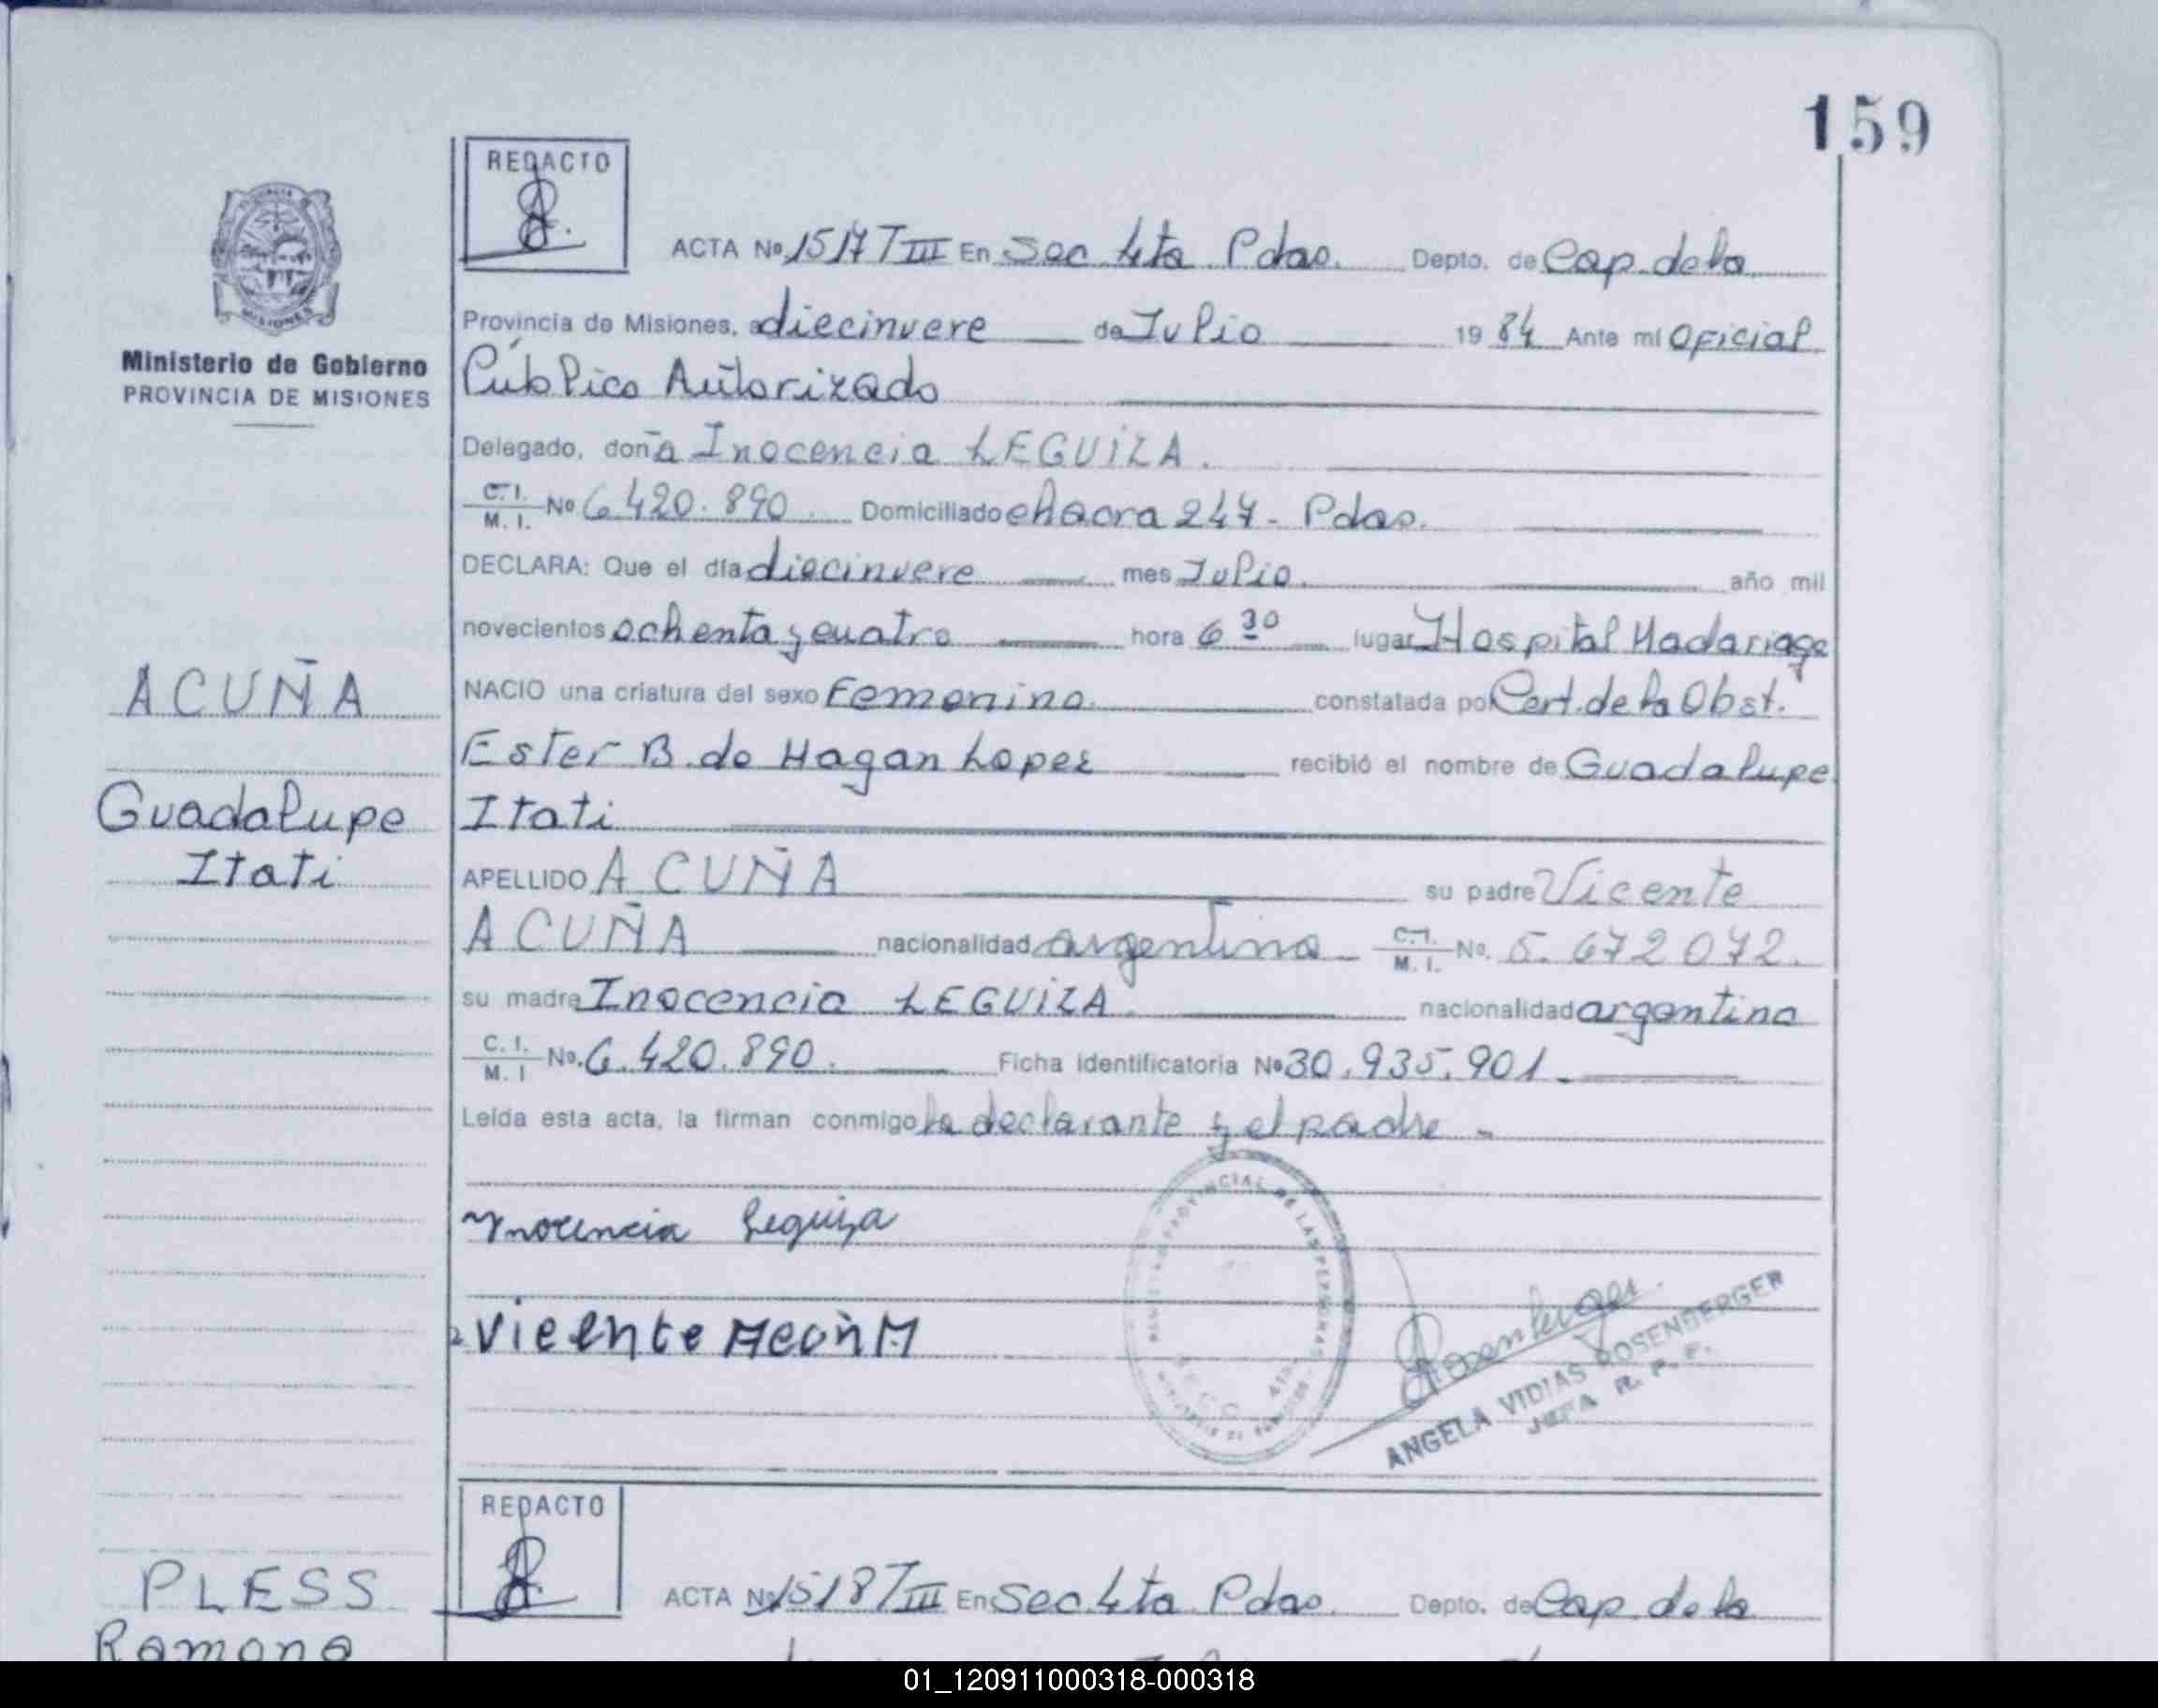 159
REDACTO
ACTA Nº 1517 T III En Sec 4ta Pdas. Depto. de Cap. de la
Provincia de Misiones, a diecinueve de Julio 19 84 Ante mí Oficial
Público Autorizado
Delegado, doña Inocencia LEGUIZA.
C.I. M.I. Nº 6.420.890. Domiciliado chacra 247 - Pdas.
DECLARA: Que el día diecinueve mes Julio. año mil
novecientos ochenta y cuatro hora 6 30 lugar Hospital Madariaga
NACIO una criatura del sexo Femenino. constatada por Cert. de la Obst.
Ester B. de Hagan Lopez recibió el nombre de Guadalupe
Itati
APELLIDO ACUÑA su padre Vicente
ACUÑA nacionalidad argentina - C.I. M.I. No. 5.672072.
su madre Inocencia LEGUIZA. nacionalidad argentina
C.I. M.I No. 6.420.890. Ficha identificatoria Nº 30.935.901.
Leída esta acta, la firman conmigo la declarante y el padre -
Inocencia Leguiza
Vicente Acuña
PROVINCIAL DE LAS PERSONAS
ANGELA VIDIAS ROSENBERGER
JEFA R. P. P.
Ministerio de Gobierno
PROVINCIA DE MISIONES
ACUÑA
Guadalupe
Itati
REDACTO
ACTA Nº 1518 T III En Sec. 4ta Pdas. Depto. de Cap. de la
PLESS
Ramona
01_120911000318-000318